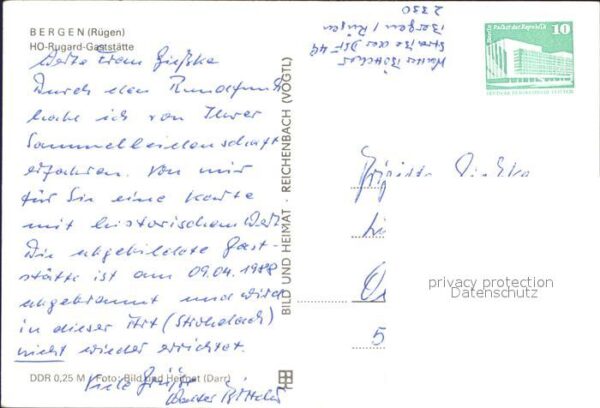 BERGEN (Rügen)
HO-Rugard-Gaststätte
Werte Frau
Durch den Rundfunk
habe ich von Ihrer
Sammelleidenschaft
erfahren. Von mir
für Sie eine Karte
mit historischem Wert.
Die abgebildete Gast-
stätte ist am 09.04.1988
abgebrannt und wird
in dieser Art (Strohdach)
nicht wieder errichtet.
Viele Grüße
Walter Böttcher
DDR 0,25 M · Foto: Bild und Heimat (Darr)
BILD UND HEIMAT · REICHENBACH (VOGTL)
Walter Böttcher
Straße der DSF 44
Bergen / Rügen
2330
Berlin, Palast der Republik
10
DEUTSCHE DEMOKRATISCHE REPUBLIK
Brigitte
5
privacy protection
Datenschutz